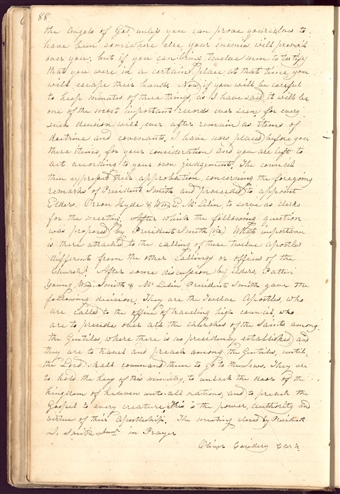 88
the Angels of God, unless you can prove yourselves to
have been somewhere else, your enemies will prevail
over you; but if you can bring twelve men to testify
that you were in a certain place at that time, you
will escape their hands. Now if you will be careful
to keep minutes of these things, as I have said, it will be
one of the most important records ever seen; for every
such decision will ever after remain as items of
doctrine and covenants. I have now placed before you
these items for your consideration and you are left to
act according to your own judgments. The council
then expressed their approbation concerning the foregoing
remarks of President Smith and proceeded to appoint
Elders, Orson Hyde & Wm. E. McLelin to serve as clerks
for the meeting. After which the following question
was proposed by President Smith (viz) What importance
is there attached to the calling of these twelve Apostles
different from the other callings or offices of the
Church? After some discussion by Elders Patten,
Young, Wm. Smith & McLelin President Smith gave the
following decision. They are the Twelve Apostles, who
are called to the office of travelling high council, who
are to preside over all the churches of the Saints among
the Gentiles, where there is no presidency established, and
they are to travel and preach among the Gentiles, until
the Lord shall command them to go to the Jews. They are
to hold the keys of this ministry, to unlock the door of the
kingdom of heaven unto all nations, and to preach the
Gospel to every creature. This is the power, authority and
virtue of their Apostleship. The meeting closed by President
J. Smith Senr in Prayer
Oliver Cowdery Clerk